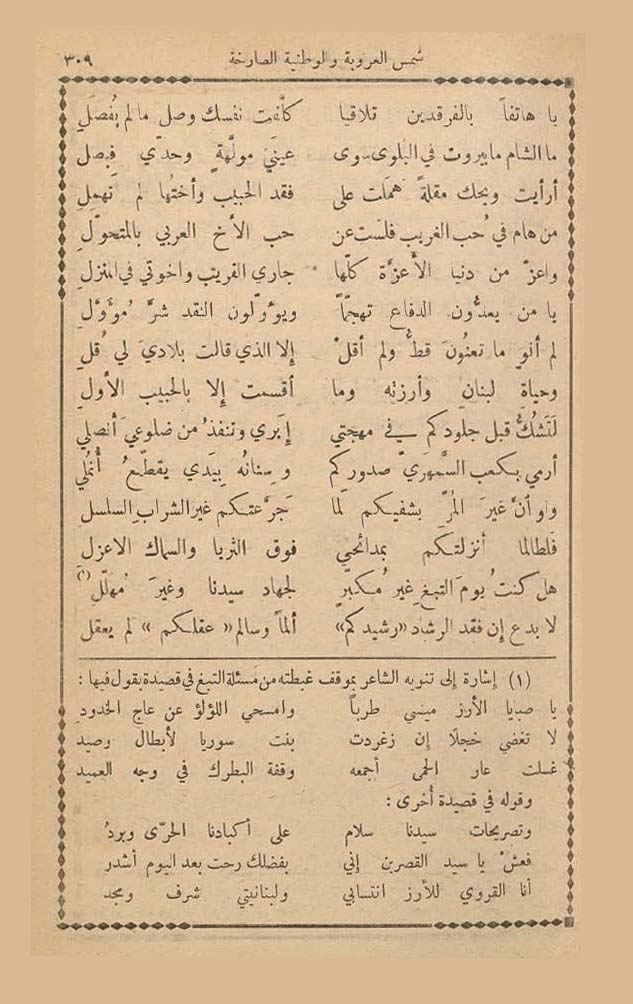 شمس العروبة والوطنية الصارخة ٣٠٩
يا هاتفاً بالفرقدين تلاقيا كلَّفت نفسك وصل مالم يُفصَلِ
ما الشام ما بيروت في البلوى سوى عينَي مولَّهةٍ وحدَّي فيصل
أرأيت ويحك مقلةً هَمَلت على فقد الحبيب وأختُها لم تهملِ
من هام في حُب الغريب فلست عن حب الأخ العربي بالمتحوّلِ
واعزّ من دنيا الأعزَّة كلّها جاري القريب واخوتي في المنزل
يا من يعدُّون الدفاع تهجّماً ويؤوّلون النقد شرَّ مُؤَوَّلِ
لم أنوِ ما تعنُونَ قطُّ ولم أقلْ إلا الذي قالت بلادي لي قُلِ
وحياةِ لبنانٍ وأرزته وما أقسمت إلا بالحبيب الأول
لَتَشُكُّ قبل جلودكم في مهجتي إبَري وتنفذُ من ضلوعي أنصلي
أرمي بكعب السَّمهَريّ صدوركم وسنانُه بيَدي يقطّعُ أنمُلي
ولو أنَّ غيرَ المُرّ يشفيكم لما جرَّعتكم غير الشراب السلسل
فلطالما أنزلتكم بمدائحي فوق الثريا والسماك الاعزل
هل كنتُ يومَ التبغِ غير مُكبّرٍ لجهاد سيدنا وغيرَ مُهلّلِ (١)
لا بدع إن فقد الرشاد «رشيدكم» ألماً وسالم «عقلكم» لم يعقل
(١) إشارة إلى تنويه الشاعر بموقف غبطته من مسئلة التبغ في قصيدة يقول فيها :
يا صبايا الأرز ميسي طرباً وامسحي اللؤلؤ عن عاج الخدود
لا تغضي خجلاً إن زغردت بنت سوريا لأبطال وصيد
غسلت عار الحمى أجمعه وقفة البطرك في وجه العميد
وقوله في قصيدة أخرى :
وتصريحات سيدنا سلام على أكبادنا الحرّى وبردُ
فعشْ يا سيد القصرين إني بفضلك رحت بعد اليوم أشدو
أنا القروي للأرز انتسابي ولبنانيتي شرف ومجد